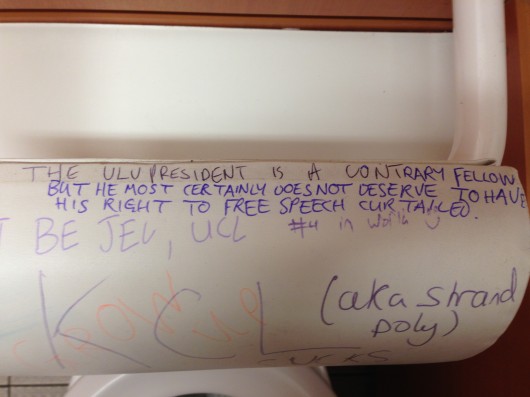 THE ULU PRESIDENT IS A CONTRARY FELLOW,
BUT HE MOST CERTAINLY DOES NOT DESERVE TO HAVE
HIS RIGHT TO FREE SPEECH CURTAILED.
T BE JEL, UCL #4 in world
KCL (aka strand
poly)
SUCKS